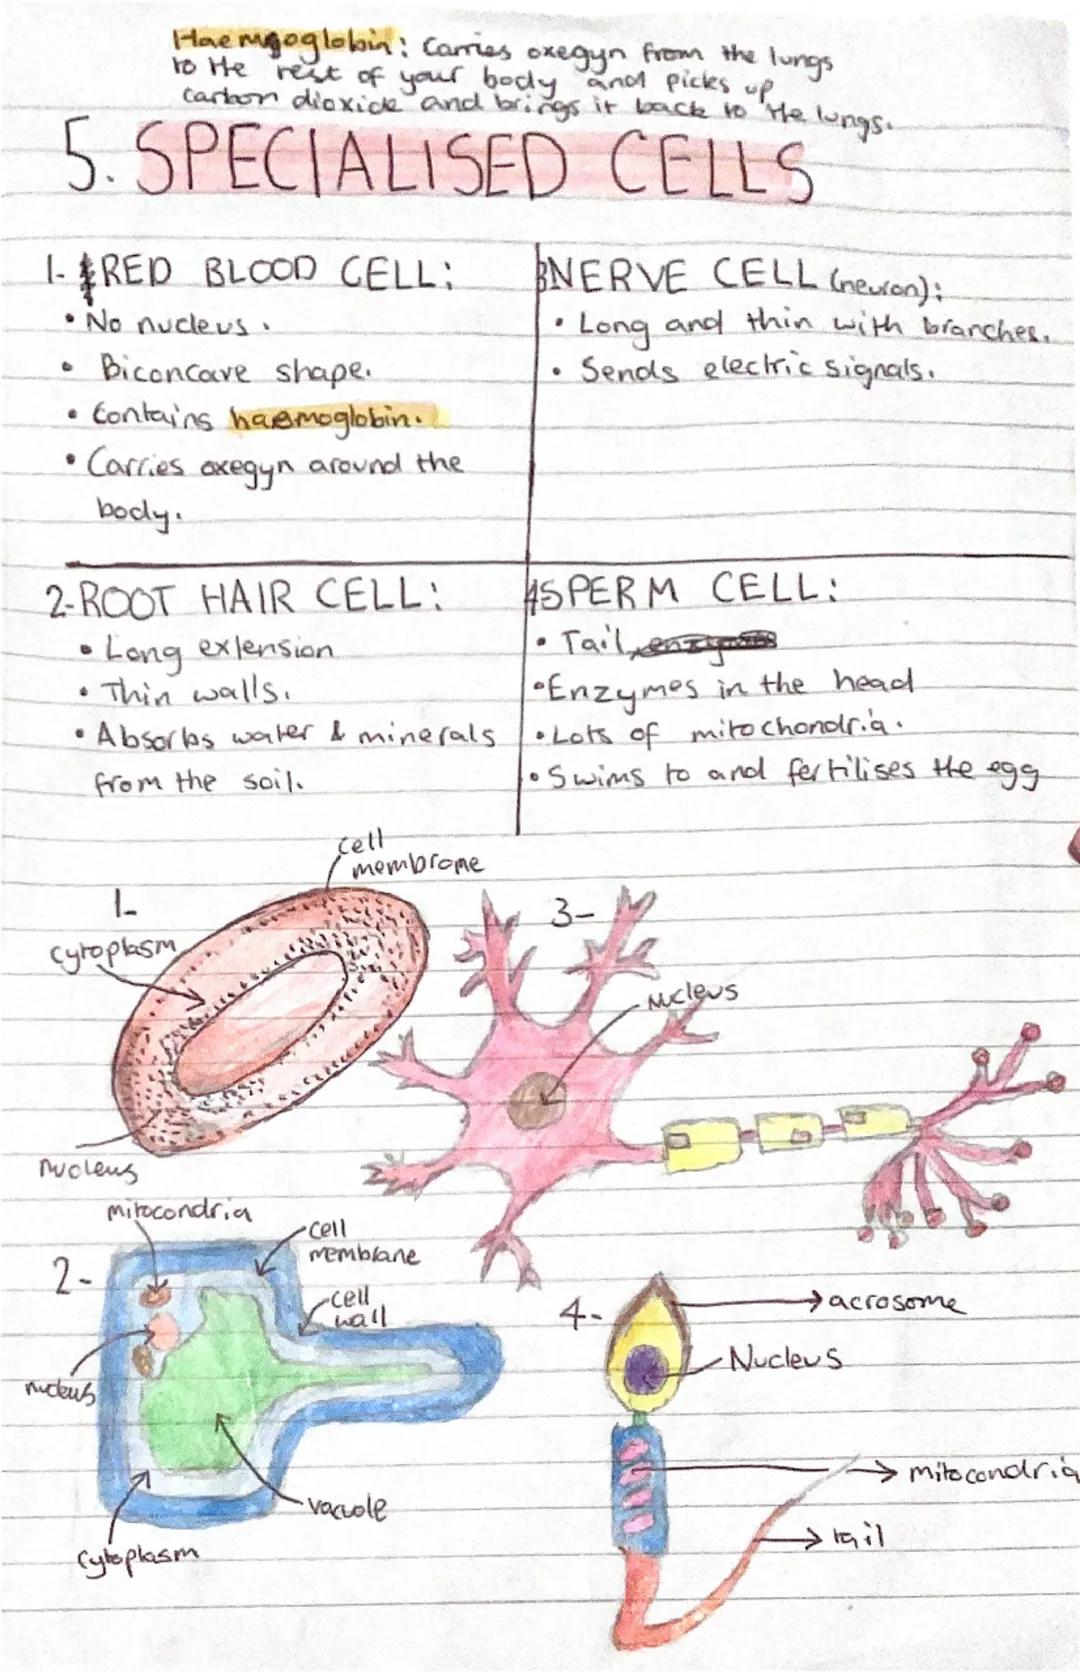 Haemgoglobin: Carries oxegyn from the lungs
to the rest of your body and picks up
carbon dioxide and brings it back to the lungs.
5. SPECIALISED CELLS
1- RED BLOOD CELL:
• No nucleus.
• Biconcave shape.
• Contains haemoglobin.
• Carries oxegyn around the
body.
3NERVE CELL (neuron):
• Long and thin with branches.
• Sends electric signals.
2-ROOT HAIR CELL:
• Long extension
• Thin walls.
• Absorbs water & minerals
from the soil.
4SPERM CELL:
• Tail
• Enzymes in the head
• Lots of mitochondria.
• Swims to and fertilises the egg
1-
cell
membrome
cytoplasm
nucleus
3-
Nucleus
2-
mitocondria
cell
membrane
cell
wall
nucleus
vacuole
cytoplasm
4-
acrosome
Nucleus
mitocondria
tail